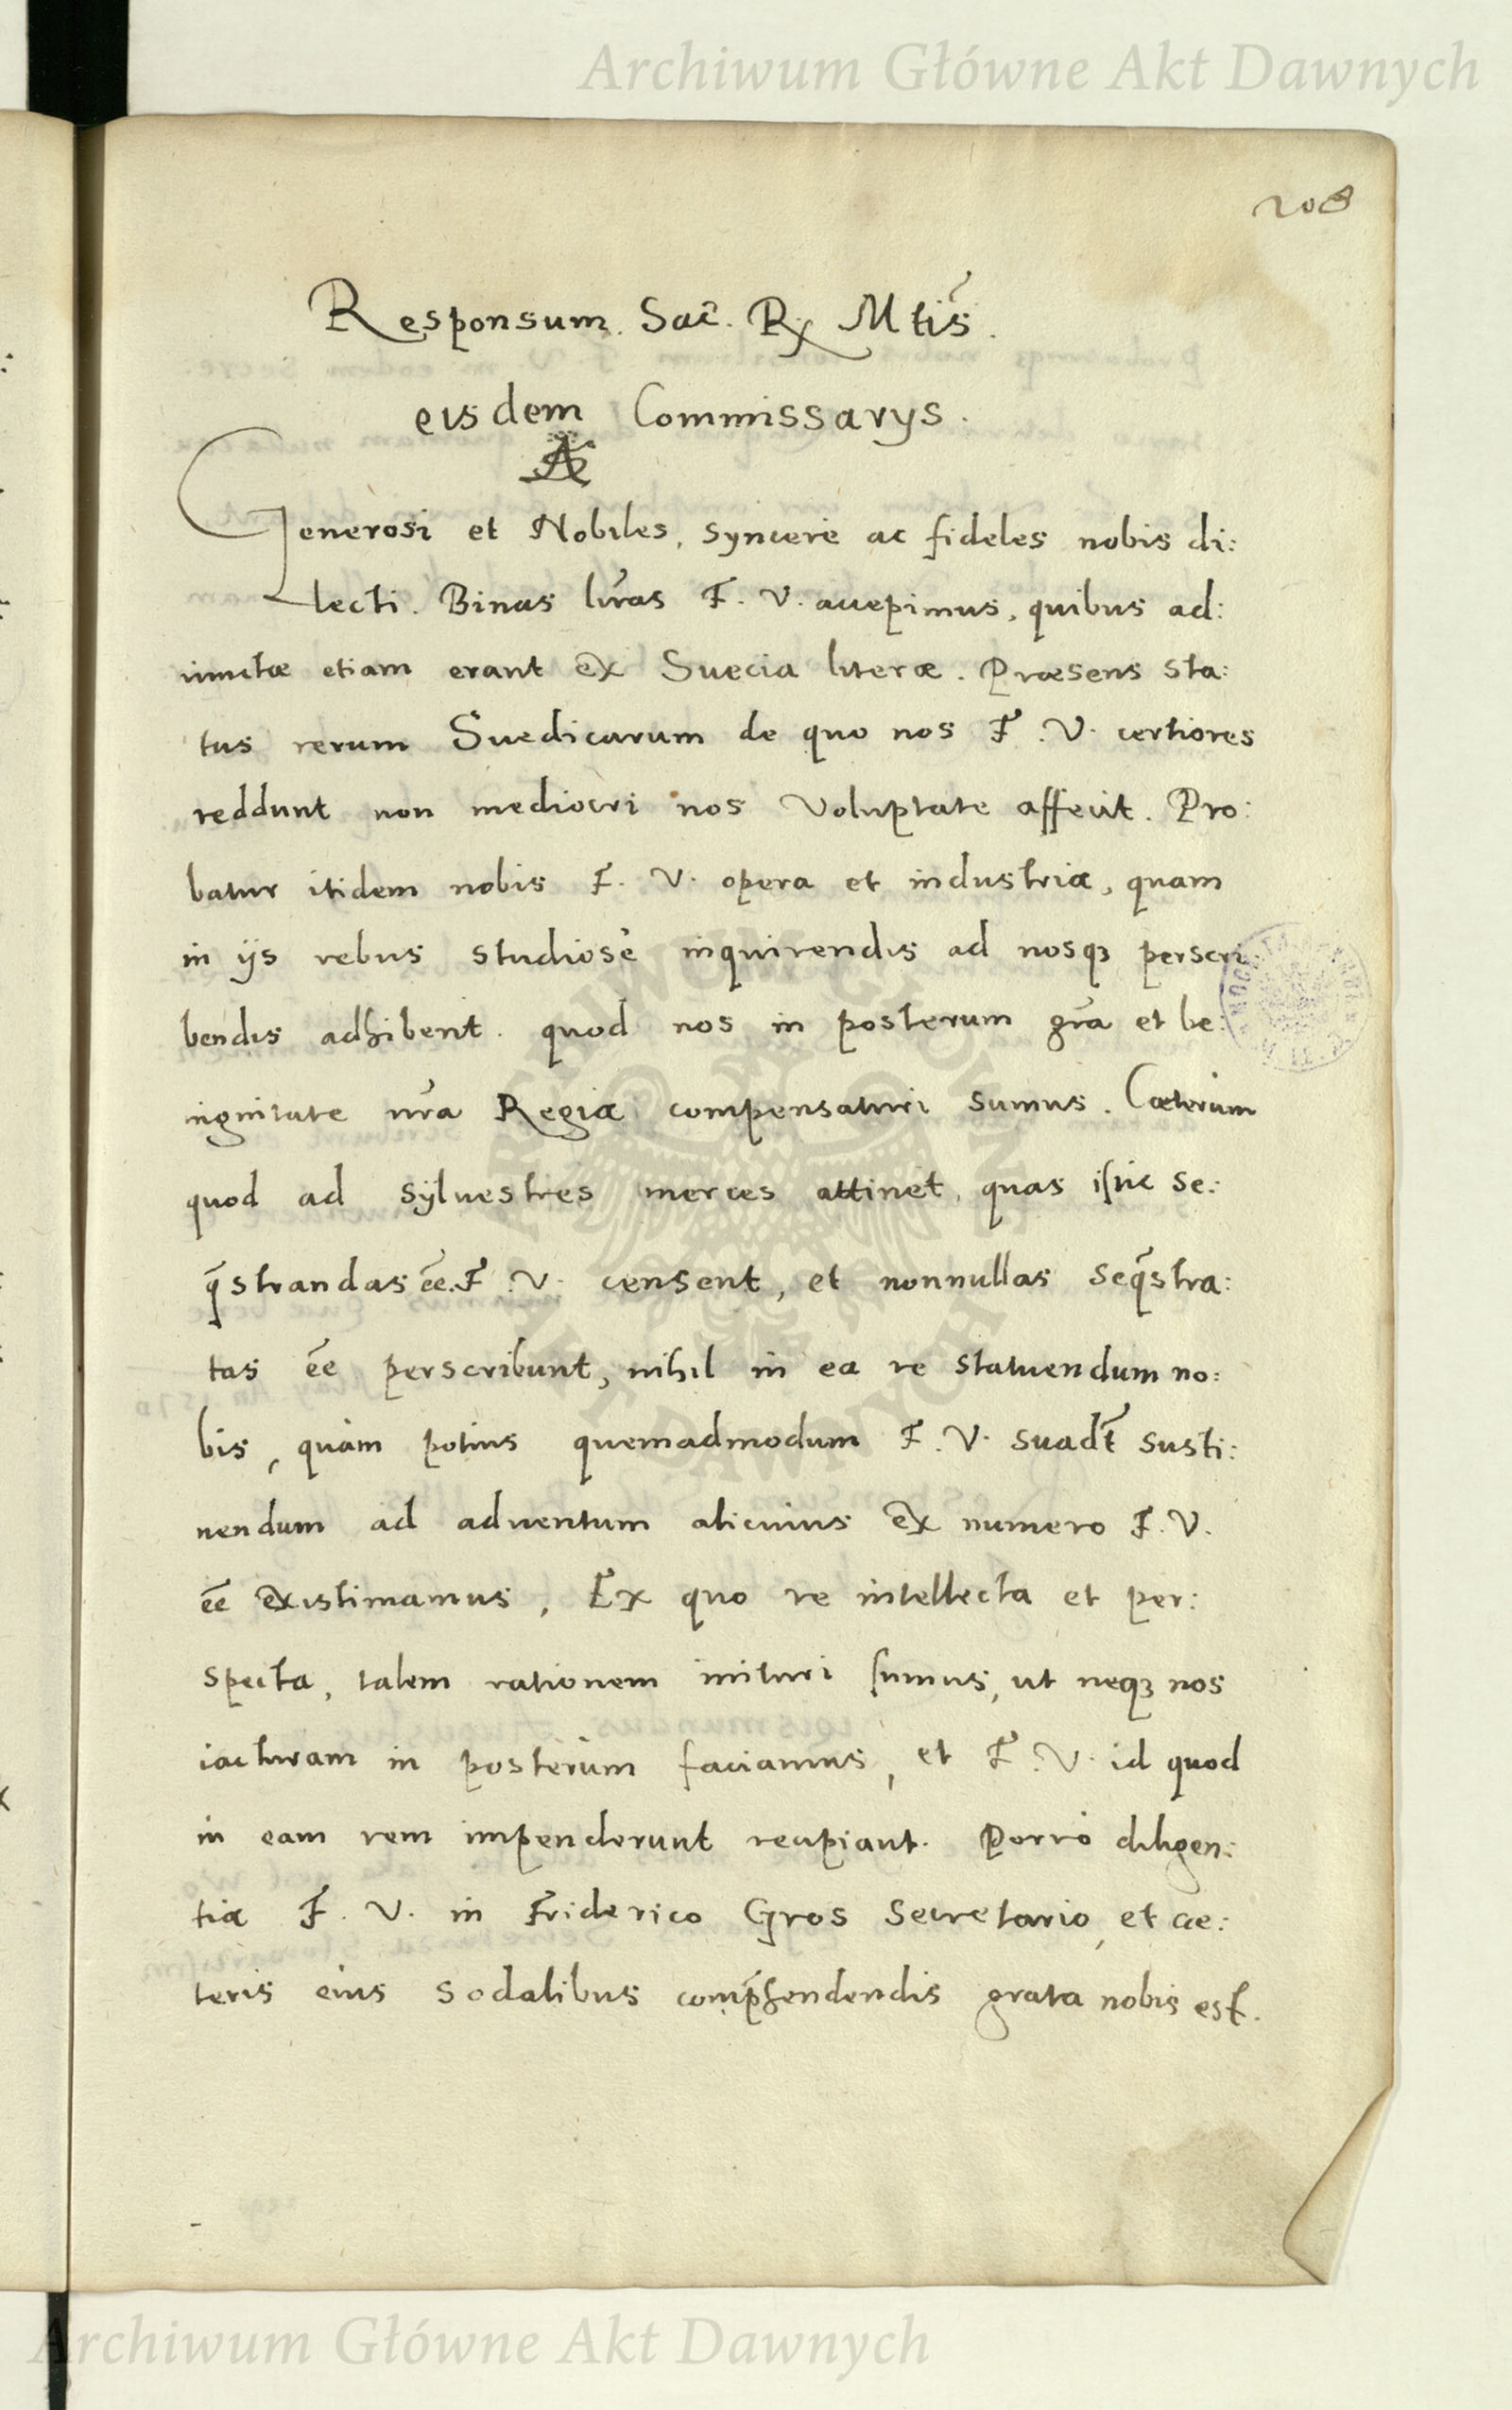 Archiwum Główne Akt Dawnych
208
Responsum Sac̃. Rx Mtis̃.
eisdem Commissarys.
Generosi et Nobiles, syncerè ac fideles nobis di:
lecti. Binas lr̃as F. V. accepimus, quibus ad:
iunctæ etiam erant ex Suecia literæ. Præsens sta:
tus rerum Suedicarum de quo nos F. V. certiores
reddunt non mediocri nos Voluptate affecit. Pro:
batur itidem nobis F. V. opera et industria, quam
in ijs rebus studiosè inquirendis ad nosqꝫ perscri
bendis adhibent. quod nos in posterum gr̃a et be:
nignitate nr̃a Regia compensaturi sumus. Cæterum
quod ad sylvestres merces attinet, quas istic se:
q̃strandas ẽe. F. V. censent, et nonnullas seq̃stra:
tas ẽe perscribunt, nihil in ea re statuendum no:
bis, quàm potius quemadmodum F. V. suadt̃ susti:
nendum ad adventum alicuius ex numero F. V.
ẽe existimamus, Ex quo re intellecta et per:
specta, talem rationem inituri sumus, ut neqꝫ nos
iacturam in posterùm faciamus, et F. V. id quod
in eam rem impenderunt recipiant. Porrò diligen:
tia F. V. in Friderico Gros Secretario, et cæ:
teris eius sodalibus comp̃hendendis grata nobis est.
Archiwum Główne Akt Dawnych